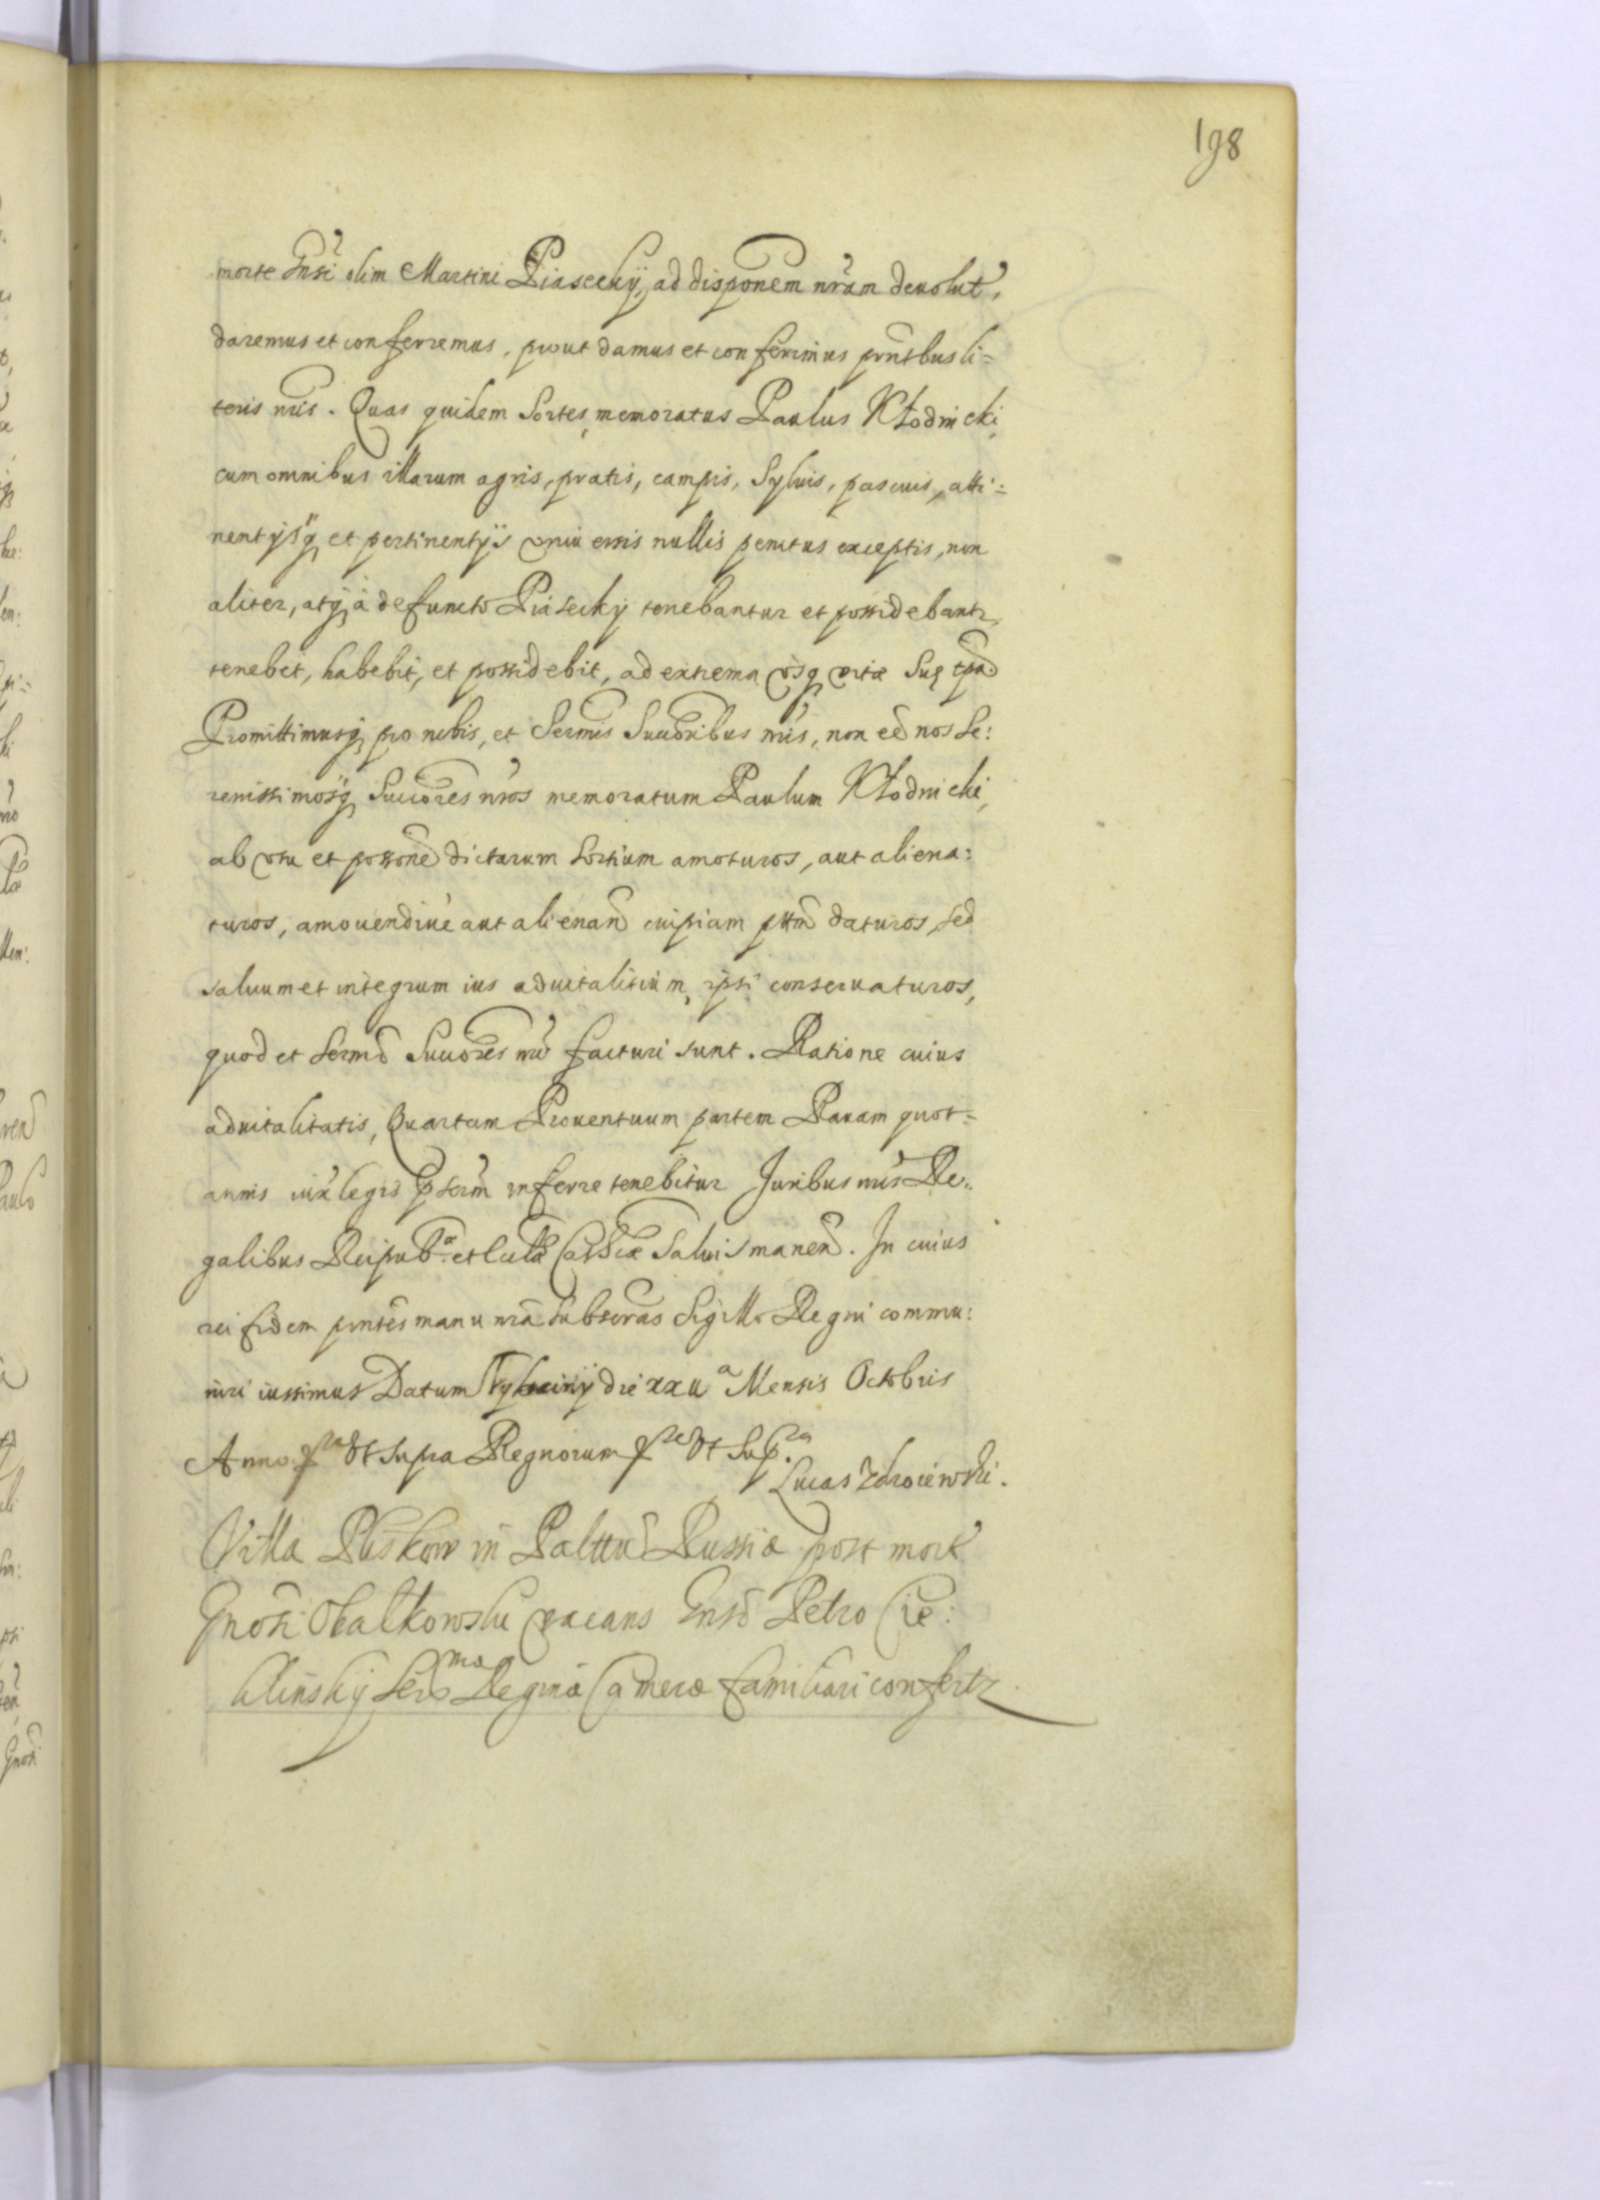 198
morte Gnsi olim Martini Piaseckÿ, ad disponem nram deuolut,
daremus et conferremus, prout damus et conferimus pntbus li=
teris nris. Quas quidem Sortes, memoratus Paulus Kłodnicki,
cum omnibus illarum agris, pratis, campis, Syluis, pascuis, atti=
nentÿsq et pertinentÿs vniuersis nullis penitus exceptis, non
aliter, atq à defuncto Piaseckÿ tenebantur et possidebantr,
tenebit, habebit, et possidebit, ad extrema vsq vitæ Suę tpa
Promittimusq pro nobis, et Sermis Succoribus nris, non eē nos Se:
renissimosq Succores nros memoratum Paulum Kłodnicki,
ab vsu et possone dictarum Sortium amoturos, aut aliena:
turos, amouendiue aut alienan cuipiam ptm daturos, sed
saluum et integrum ius aduitalitium, ipsi conseruaturos,
quod et Sermi Succores nri facturi sunt. Ratione cuius
aduitalitatis, Quartam Prouentuum partem Rauam quot=
annis iux legis pscrm inferre tenebitur Juribus nris Re:
galibus Reipub et Catholicæ Saluis manen. In cuius
rei fidem pntes manu nra subscras Sigillo Regni commu:
niri iussimus Datum Tykocinÿ die xxiia Mensis Octobris
Anno vt supra Regnorum vt Sup.
Lucas Zdroiewski.
Villa Pliskow in Palttu Russiæ post mort
Gnosi Obalkowski vacans Gnso Petro Cie:
klinskÿ Serma Reginæ Cameræ familiari confertr